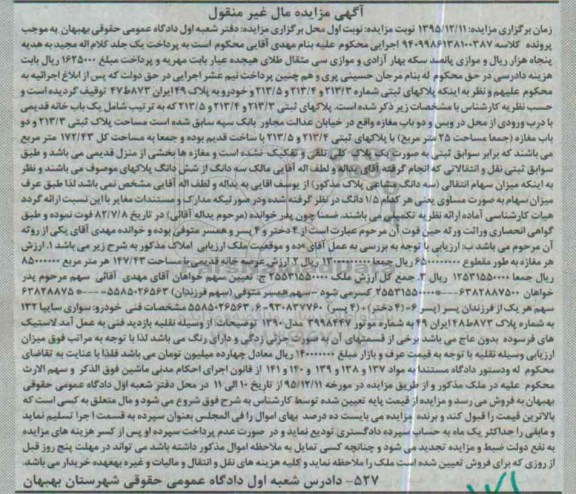 آگهی مزایده مال غیر منقول
زمان برگزاری مزایده: ۱۳۹۵/۱۲/۱۱ نوبت مزایده: نوبت اول محل برگزاری مزایده: دفتر شعبه اول دادگاه عمومی حقوقی بهبهان به موجب
پرونده کلاسه ۹۴۰۹۹۸۶۱۳۸۱۰۰۳۸۷ اجرایی محکوم علیه بنام مهدی آقایی محکوم است به پرداخت یک جلد کلام اله مجید به هدیه
پنجاه هزار ریال و موازی پانصد سکه بهار آزادی و موازی سی مثقال طلای هیجده عیار بابت مهریه و پرداخت مبلغ ۱۶۲۵۰۰۰ ریال بابت
هزینه دادرسی در حق محکوم له بنام مرجان حسینی پری و هم چنین پرداخت نیم عشر اجرایی در حق دولت که پس از ابلاغ اجرائیه به
محکوم علیهم و نظر به اینکه پلاکهای ثبتی شماره ۲۱۳/۳ و ۲۱۳/۴ و ۲۱۳/۵ و خودرو به پلاک ۴۹ ایران ۴۷ط۸۷۳ توقیف گردیده است و
حسب نظریه کارشناس با مشخصات زیر ذکر شده است. پلاکهای ثبتی ۲۱۳/۳ و ۲۱۳/۴ و ۲۱۳/۵ که به ترتیب شامل یک باب خانه قدیمی
با درب ورودی از محل در ویس و دو باب مغازه واقع در خیابان عدالت مجاور بانک سپه سابق شده است مساحت پلاک ثبتی ۲۱۳/۳ و دو
باب مغازه (جمعا مساحت ۲۵ متر مربع) با پلاکهای ثبتی ۲۱۳/۴ و ۲۱۳/۵ با ساخت قدیم بوده و جمعا به مساحت کل ۱۷۲/۴۳ متر مربع
می باشند که برابر سوابق ثبتی به صورت یک پلاک کلی تلقی و تفکیک نشده است و مغازه ها بخشی از منزل قدیمی می باشد و طبق
سوابق ثبتی نقل و انتقالاتی که انجام گرفته آقای یداله و لطف اله آقایی مالک سه دانگ از شش دانگ پلاکهای موصوف می باشند و نظر
به اینکه میزان سهام انتقالی (سه دانگ مشاعی پلاک مذکور) از یوسف آقایی به یداله و لطف اله آقایی مشخص نمی باشد لذا طبق عرف
میزان سهام به صورت مساوی یعنی هر کدام ۱/۵ دانگ در نظر گرفته شده و در صورتیکه مدارک و مستندات مغایر با این نسبت ارائه گردد
هیات کارشناسی آماده ارائه نظریه تکمیلی می باشند. ضمنا چون پدر خوانده (مرحوم یداله آقائی) در تاریخ ۸۲/۷/۸ فوت نموده و طبق
گواهی انحصاری وراثت ورثه حین فوت آن مرحوم عبارت است از ۴ دختر و ۴ پسر و همسر متوفی بوده و خوانده مهدی آقای یکی از روثه
آن مرحوم می باشد ب: ارزیابی با توجه به بررسی به عمل آقای مده و موقعیت ملک ارزیابی املاک مذکور به شرح زیر می باشد ۱. ارزش
هر مغازه به طور مقطوع ۶۵۰۰۰۰۰۰۰ ریال جمعا ۱۳۰۰۰۰۰۰۰۰ ریال ۲ ارزش عرصه خانه قدیمی با مساحت ۱۴۷/۴۳ هر متر مربع ۸۵۰۰۰۰۰
ریال جمعا ۱۲۵۳۱۵۵۰۰۰ ریال ۳. جمع کل ارزش ملک ۲۵۵۳۱۵۵۰۰۰ ج. تعیین سهم خواهان آقای مهدی آقائی سهم مرحوم پدر
سهم هر یک از فرزندان پسر (پسر ۴) (۴ دختر) مشخصات فنی خودرو: سواری سایپا ۱۳۲
به شماره پلاک ۴۸ط۸۷۳ ایران ۴۹ به شماره موتور ۳۹۹۸۴۴۷ مدل ۱۳۹۰ توضیحات: از وسیله نقلیه بازدید فنی به عمل آمد لاستیک
های فرسوده بدون عاج می باشد برخی از قسمتهای آن به صورت جزئی زدگی و دارای رنگ می باشد لذا با توجه به مراتب فوق میزان
ارزیابی وسیله نقلیه با توجه به قیمت عرف و بازار مبلغ ۱۴۰۰۰۰۰۰۰ ریال معادل چهارده میلیون تومان می باشد. فلذا با عنایت به تقاضای
محکوم له و دستور دادگاه مستندا به مواد ۱۳۷ و ۱۳۸ و ۱۳۹ و ۱۴۰ و ۱۴۱ از قانون اجرای احکام مدنی ماشین فوق الذکر و سهم الارث
محکوم علیه در ملک مذکور و از طریق مزایده در مورخه ۹۵/۱۲/۱۱ از تاریخ ۱۰ الی ۱۱ در محل دفتر شعبه اول دادگاه عمومی حقوقی
بهبهان به فروش می رسد و مزایده از قیمت پایه تعیین شده توسط کارشناس به شرح فوق شروع می شود و مال متعلق به کسی است که
بالاترین قیمت را قبول کند و برنده مزایده می بایست ده درصد بهای اموال را فی المجلس بعنوان سپرده به قسمت اجرا تسلیم نماید
و مابقی را حداکثر یک ماه به حساب سپرده دادگستری تودیع نماید و در صورت عدم پرداخت سپرده او پس از کسر هزینه های مزایده
به نفع دولت ضبط و مزایده تجدید می شود و چنانچه کسی تمایل به ملاحظه اموال مذکور داشته باشد می تواند در مهلت پنج روز قبل
از روزی که برای فروش تعیین شده است ملک را ملاحظه نماید و کلیه هزینه های نقل و انتقال و مالیات و غیره بعهده خریدار می باشد.
۵۲۷- دادرس شعبه اول دادگاه عمومی حقوقی شهرستان بهبهان